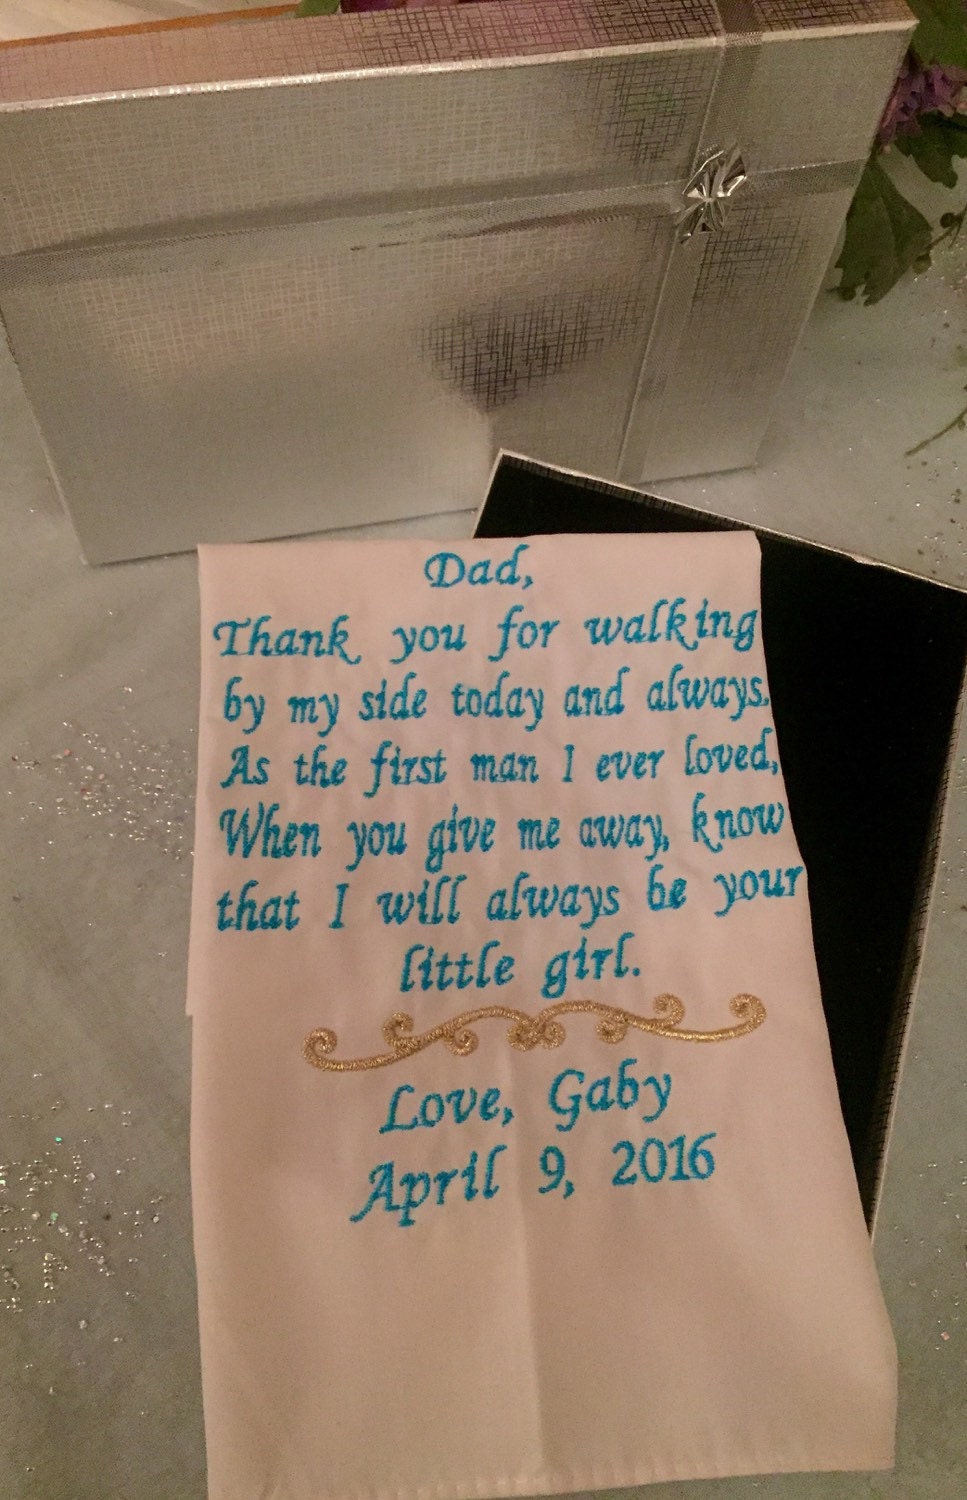 Dad,
Thank you for walking
by my side today and always.
As the first man I ever loved,
When you give me away, know
that I will always be your
little girl.
Love, Gaby
April 9, 2016